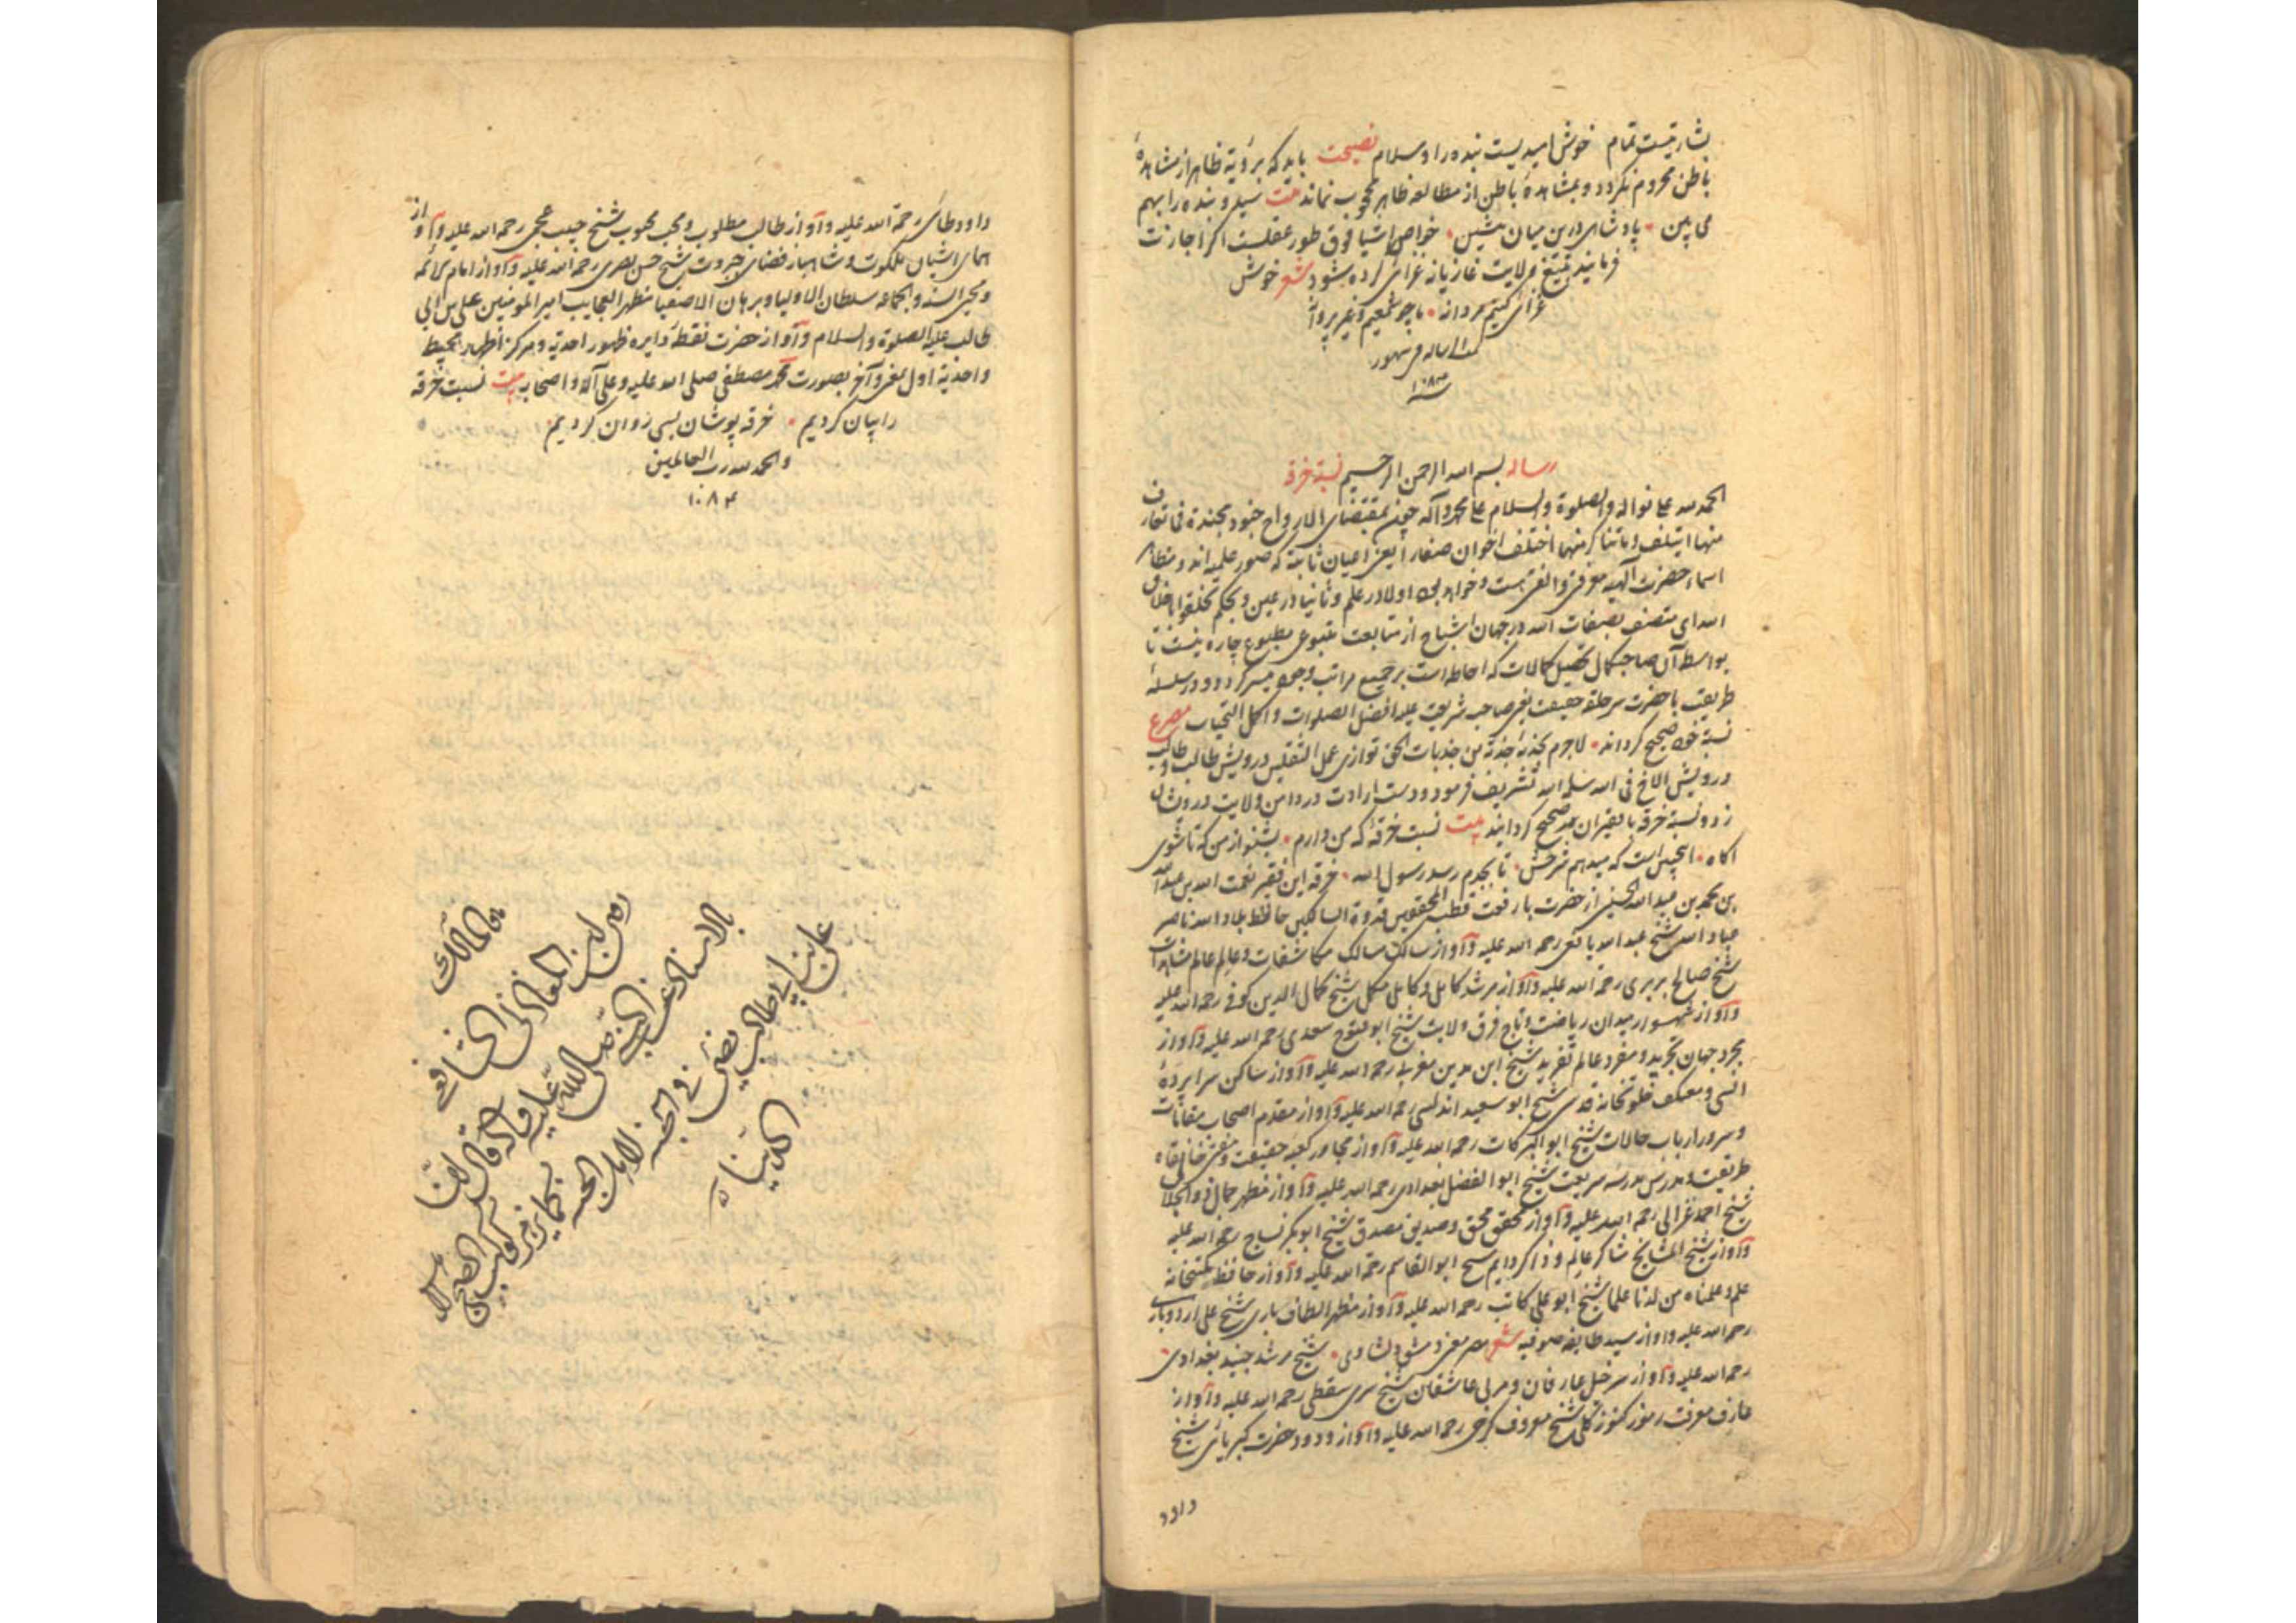 بشارتیست تمام خوش امیدیست بنده را والسلام نصیحت باید که برؤیة ظاهر از مشاهدهٔ
باطن محروم نکردد و بمشاهدهٔ باطن از مطالعهٔ ظاهر محجوب نماند بیت سید و بنده را بهم
می بین پادشاهی درین میان بنشین خواص اشیا فوق طور عقلست اکر اجازت
فرمایند بتیغ ولایت غازیانه غزائی کرده شود شعر خوش
غزائی کنیم مردانه ما چو شمعیم و غیر پروانه
سنه ۱۰۸۴
رساله بسم الله الرحمن الرحیم نسبة خرقه
الحمد لله علی نواله والصلوة والسلام علی محمد وآله چون بمقتضای الارواح جنود مجندة فما تعارف
منها ایتلف وما تناکر منها اختلف اخوان صفا را یعنی اعیان ثابته که صور علمیه اند و مظاهر
اسماء حضرت الهیه معرفتی والفتی هست و خواهد بود اولا در علم و ثانیا در عین و بحکم تخلقوا باخلاق
الله ای متصف بصفات الله در جهان اشباح از متابعت متبوعی مطبوع چاره نیست تا
بواسطه آن صاحب کمال تحصیل کمالات که احاطه است بر جمیع مراتب وجود میسر کردد و در سلسلهٔ
طریقت با حضرت سر حلقه حقیقت یعنی صاحب شریعت علیه افضل الصلوات واکمل التحیات مصرع
نسبة خود صحیح کرداند لاجرم بجذبهٔ جذبة من جذبات الحق توازی عمل الثقلین درویش طالب و طالب
درویش الاخ فی الله سلمه الله تشریف فرمود و دست ارادت در دامن ولایت درویشان
زد و نسبة خرقه با فقیران صحیح کردانید بیت نسبت خرقهٔ که من دارم بشنو از من که تا شوی
اکاه اینچنین است که میدهم شرحش تا بجدم رسد رسول الله خرقه این فقیر نعمت الله بن عبد الله
بن محمد بن عبد الله الحسینی از حضرت با رفعت قطب المحققین قدوة السالکین حافظ بلاد الله ناصر
عباد الله شیخ عبد الله یافعی رحمة الله علیه و او از سالک مسالک مکاشفات و عالم عالم مشاهدات
شیخ صالح بربری رحمة الله علیه و او از مرشد کامل و کامل مکمل شیخ کمال الدین کوفی رحمة الله علیه
و او از شهسوار میدان ریاضت و تاج فرق ولایت شیخ ابو فتوح سعیدی رحمة الله علیه و او از
مجرد جهان تجرید و مفرد عالم تفرید شیخ ابن مدین مغربی رحمة الله علیه و او از ساکن سراپردهٔ
انسی و معتکف خلوتخانه قدسی شیخ ابو سعید اندلسی رحمة الله علیه و او از مقدم اصحاب مقامات
و سرور ارباب حالات شیخ ابو البرکات رحمة الله علیه و او از مجاور کعبه حقیقت و مفتی خانقاه
طریقت و مدرس مدرسه شریعت شیخ ابو الفضل بغدادی رحمة الله علیه و او از مظهر جمال ذو الجلال
شیخ احمد غزالی رحمة الله علیه و او از محقق محق و صدیق مصدق شیخ ابو بکر نساج رحمة الله علیه
و او از شیخ المشایخ شاکر عالم و ذاکر دایم شیخ ابو القاسم رحمة الله علیه و او از حافظ کتبخانه
علم و علمناه من لدنا علما شیخ ابو علی کاتب رحمة الله علیه و او از مظهر الطاف باری شیخ علی رودباری
رحمة الله علیه و او از سید طایفه صوفیه شعر مصر معنی دمشق دلشادی شیخ مرشد جنید بغدادی
رحمة الله علیه و او از سر خیل عارفان و مربی عاشقان شیخ سری سقطی رحمة الله علیه و او از
عارف معرفت رموز کنوز شیخ معروف کرخی رحمة الله علیه و او از ودود حضرت کبریائی شیخ
داود
داود طائی رحمة الله علیه و او از طالب مطلوب و محب محبوب شیخ حبیب عجمی رحمة الله علیه و او از
همای اشیان ملکوت و شاهباز فضای جبروت شیخ حسن بصری رحمة الله علیه و او از امام الائمه
و محیی السنه والجماعه سلطان الاولیا و برهان الاصفیا مظهر العجایب امیر المومنین علی بن ابی
طالب علیه الصلوة والسلام و او از حضرت نقطه دایره ظهور احدیه و مرکز اظهار محیط
واحدیة اول بمعنی و آخر بصورت محمد مصطفی صلی الله علیه وعلی آله واصحابه بیت نسبت خرقه
را بیان کردیم خرقه پوشان بسی روان کردیم
والحمد لله رب العالمین
۱۰۸۴
المغازلی الشافعی
بالاسناد عن النبی صلی الله علیه واله قال
علی بن ابی طالب یضیئ فی الجنه
لاهل الجنه کما یزهر کوکب الصبح لاهل
الدنیا